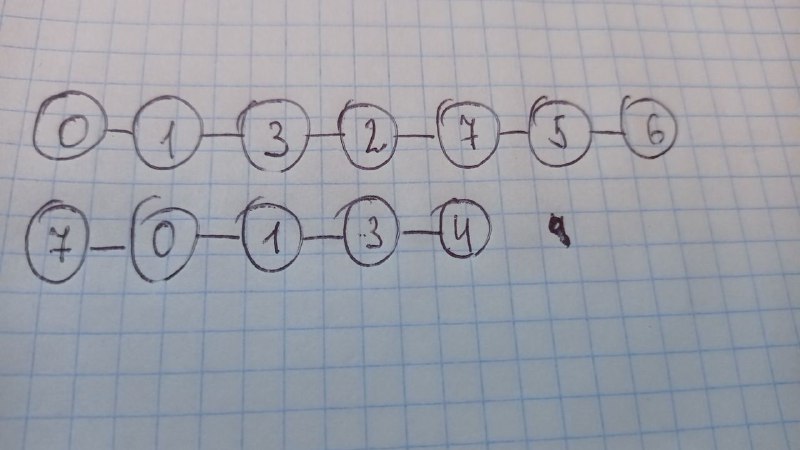 0 1 3 2 7 5 6
7 0 1 3 4